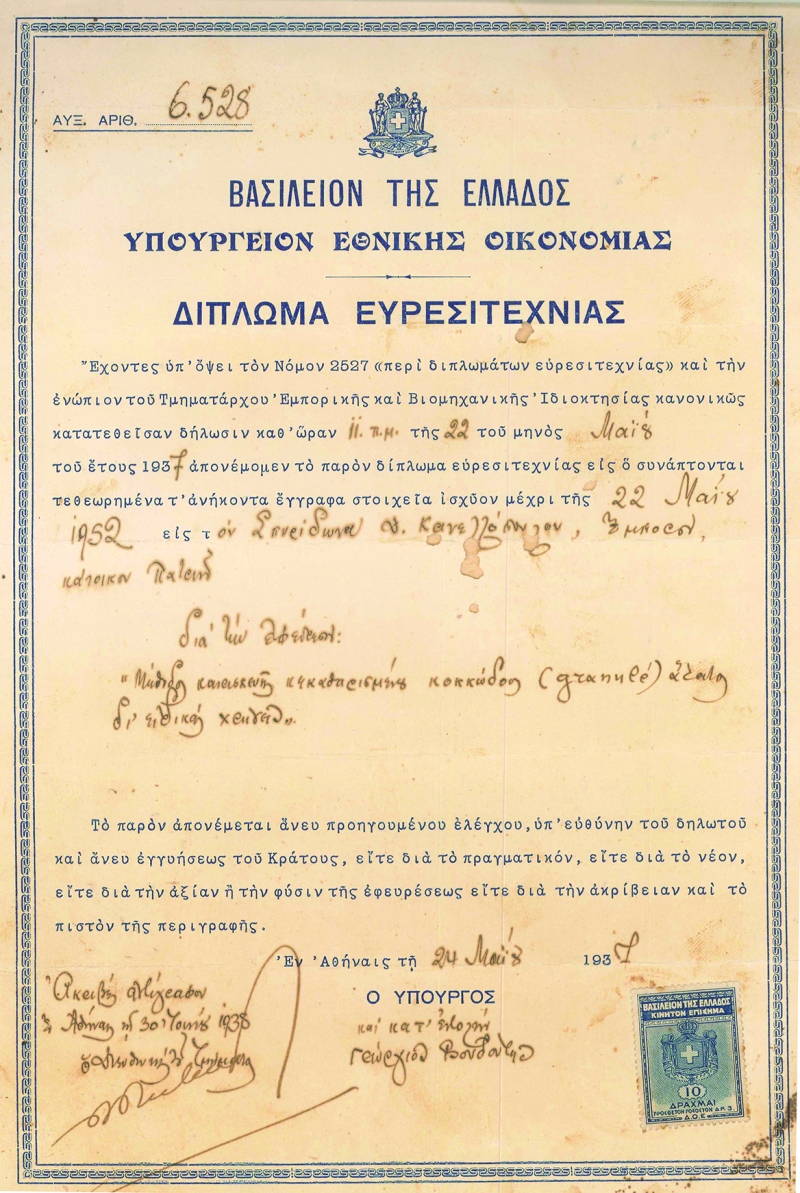 ΑΥΞ. ΑΡΙΘ. 6.528
ΒΑΣΙΛΕΙΟΝ ΤΗΣ ΕΛΛΑΔΟΣ
ΥΠΟΥΡΓΕΙΟΝ ΕΘΝΙΚΗΣ ΟΙΚΟΝΟΜΙΑΣ
ΔΙΠΛΩΜΑ ΕΥΡΕΣΙΤΕΧΝΙΑΣ
Ἔχοντες ὑπ' ὄψει τὸν Νόμον 2527 «περὶ διπλωμάτων εὑρεσιτεχνίας» καὶ τὴν
ἐνώπιον τοῦ Τμηματάρχου Ἐμπορικῆς καὶ Βιομηχανικῆς Ἰδιοκτησίας κανονικῶς
κατατεθεῖσαν δήλωσιν καθ' ὥραν 11 π.μ. τῆς 22 τοῦ μηνὸς Μαΐου
τοῦ ἔτους 1937 ἀπονέμομεν τὸ παρὸν δίπλωμα εὑρεσιτεχνίας εἰς ὃ συνάπτονται
τεθεωρημένα τ' ἀνήκοντα ἔγγραφα στοιχεῖα ἰσχῦον μέχρι τῆς 22 Μαΐου
1952 εἰς τὸν Σπυρίδωνα Κανελλόπουλον, ἔμπορον,
κάτοικον Πατρῶν
διὰ τὴν ἐφεύρεσιν:
"Μέθοδος κατασκευῆς κεκαθαρισμένου κοκκώδους (granulé) ἅλατος
δι'
Τὸ παρὸν ἀπονέμεται ἄνευ προηγουμένου ἐλέγχου, ὑπ' εὐθύνην τοῦ δηλωτοῦ
καὶ ἄνευ ἐγγυήσεως τοῦ Κράτους, εἴτε διὰ τὸ πραγματικόν, εἴτε διὰ τὸ νέον,
εἴτε διὰ τὴν ἀξίαν ἢ τὴν φύσιν τῆς ἐφευρέσεως εἴτε διὰ τὴν ἀκρίβειαν καὶ τὸ
πιστὸν τῆς περιγραφῆς.
Ἐν Ἀθήναις τῇ 24 Μαΐου 1937
Ο ΥΠΟΥΡΓΟΣ
καὶ κατ' ἐντολήν
Γεώργιος
Ἀκριβὲς ἀντίγραφον
Ἐν Ἀθήναις τῇ 30 Ἰουνίου 1938
ὁ Διευθυντὴς τοῦ Τμήματος
ΒΑΣΙΛΕΙΟΝ ΤΗΣ ΕΛΛΑΔΟΣ
ΚΙΝΗΤΟΝ ΕΠΙΣΗΜΑ
10
ΔΡΑΧΜΑΙ
Δ.Ο.Ε